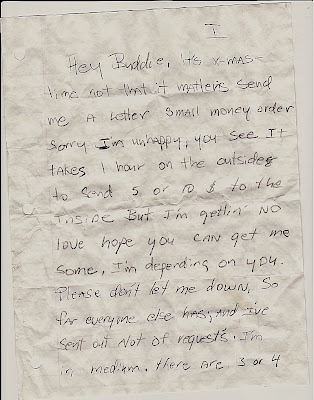 I
Hey Buddie, its x-mas-
time not that it matters send
me A letter small money order
sorry Im unhappy, you see It
takes 1 hour on the outside
to send 5 or 10 $ to the
Inside But I'm gettin' NO
love hope you can get me
some, I'm depending on you.
Please don't let me down, So
far everyone else has, and I've
sent out lot of requests. I'm
in medium. there are 3 or 4